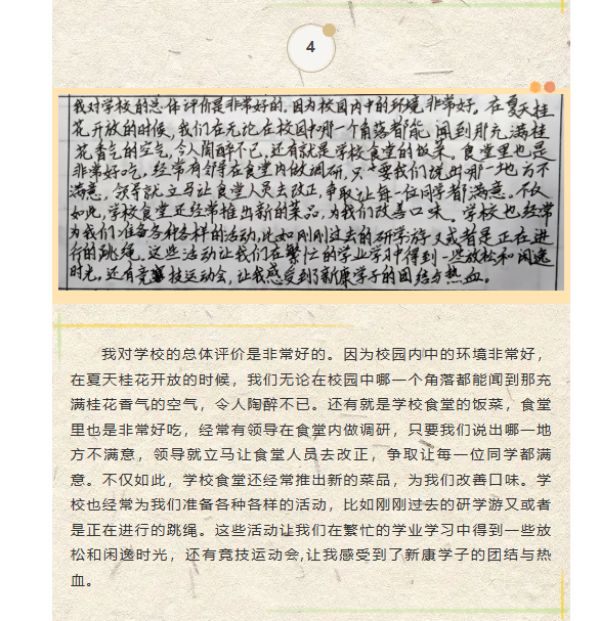 4
我对学校的总体评价是非常好的。因为校园内中的环境非常好。在夏天桂
花开放的时候,我们在无论在校园中哪一个角落都能闻到那充满桂
花香气的空气,令人陶醉不已。还有就是学校食堂的饭菜。食堂里也是
非常好吃。经常有领导在食堂内做调研,只要我们说出哪一地方不
满意,领导就立马让食堂人员去改正,争取让每一位同学都满意。不仅
如此,学校食堂还经常推出新的菜品,为我们改善口味。学校也经常
为我们准备各种各样的活动,比如刚刚过去的研学游又或者是正在进
行的跳绳。这些活动让我们在繁忙的学业学习中得到一些放松和闲逸
时光。还有竞技运动会,让我感受到了新康学子的团结与热血。
我对学校的总体评价是非常好的。因为校园内中的环境非常好,
在夏天桂花开放的时候,我们无论在校园中哪一个角落都能闻到那充
满桂花香气的空气,令人陶醉不已。还有就是学校食堂的饭菜,食堂
里也是非常好吃,经常有领导在食堂内做调研,只要我们说出哪一地
方不满意,领导就立马让食堂人员去改正,争取让每一位同学都满
意。不仅如此,学校食堂还经常推出新的菜品,为我们改善口味。学
校也经常为我们准备各种各样的活动,比如刚刚过去的研学游又或者
是正在进行的跳绳。这些活动让我们在繁忙的学业学习中得到一些放
松和闲逸时光,还有竞技运动会,让我感受到了新康学子的团结与热
血。